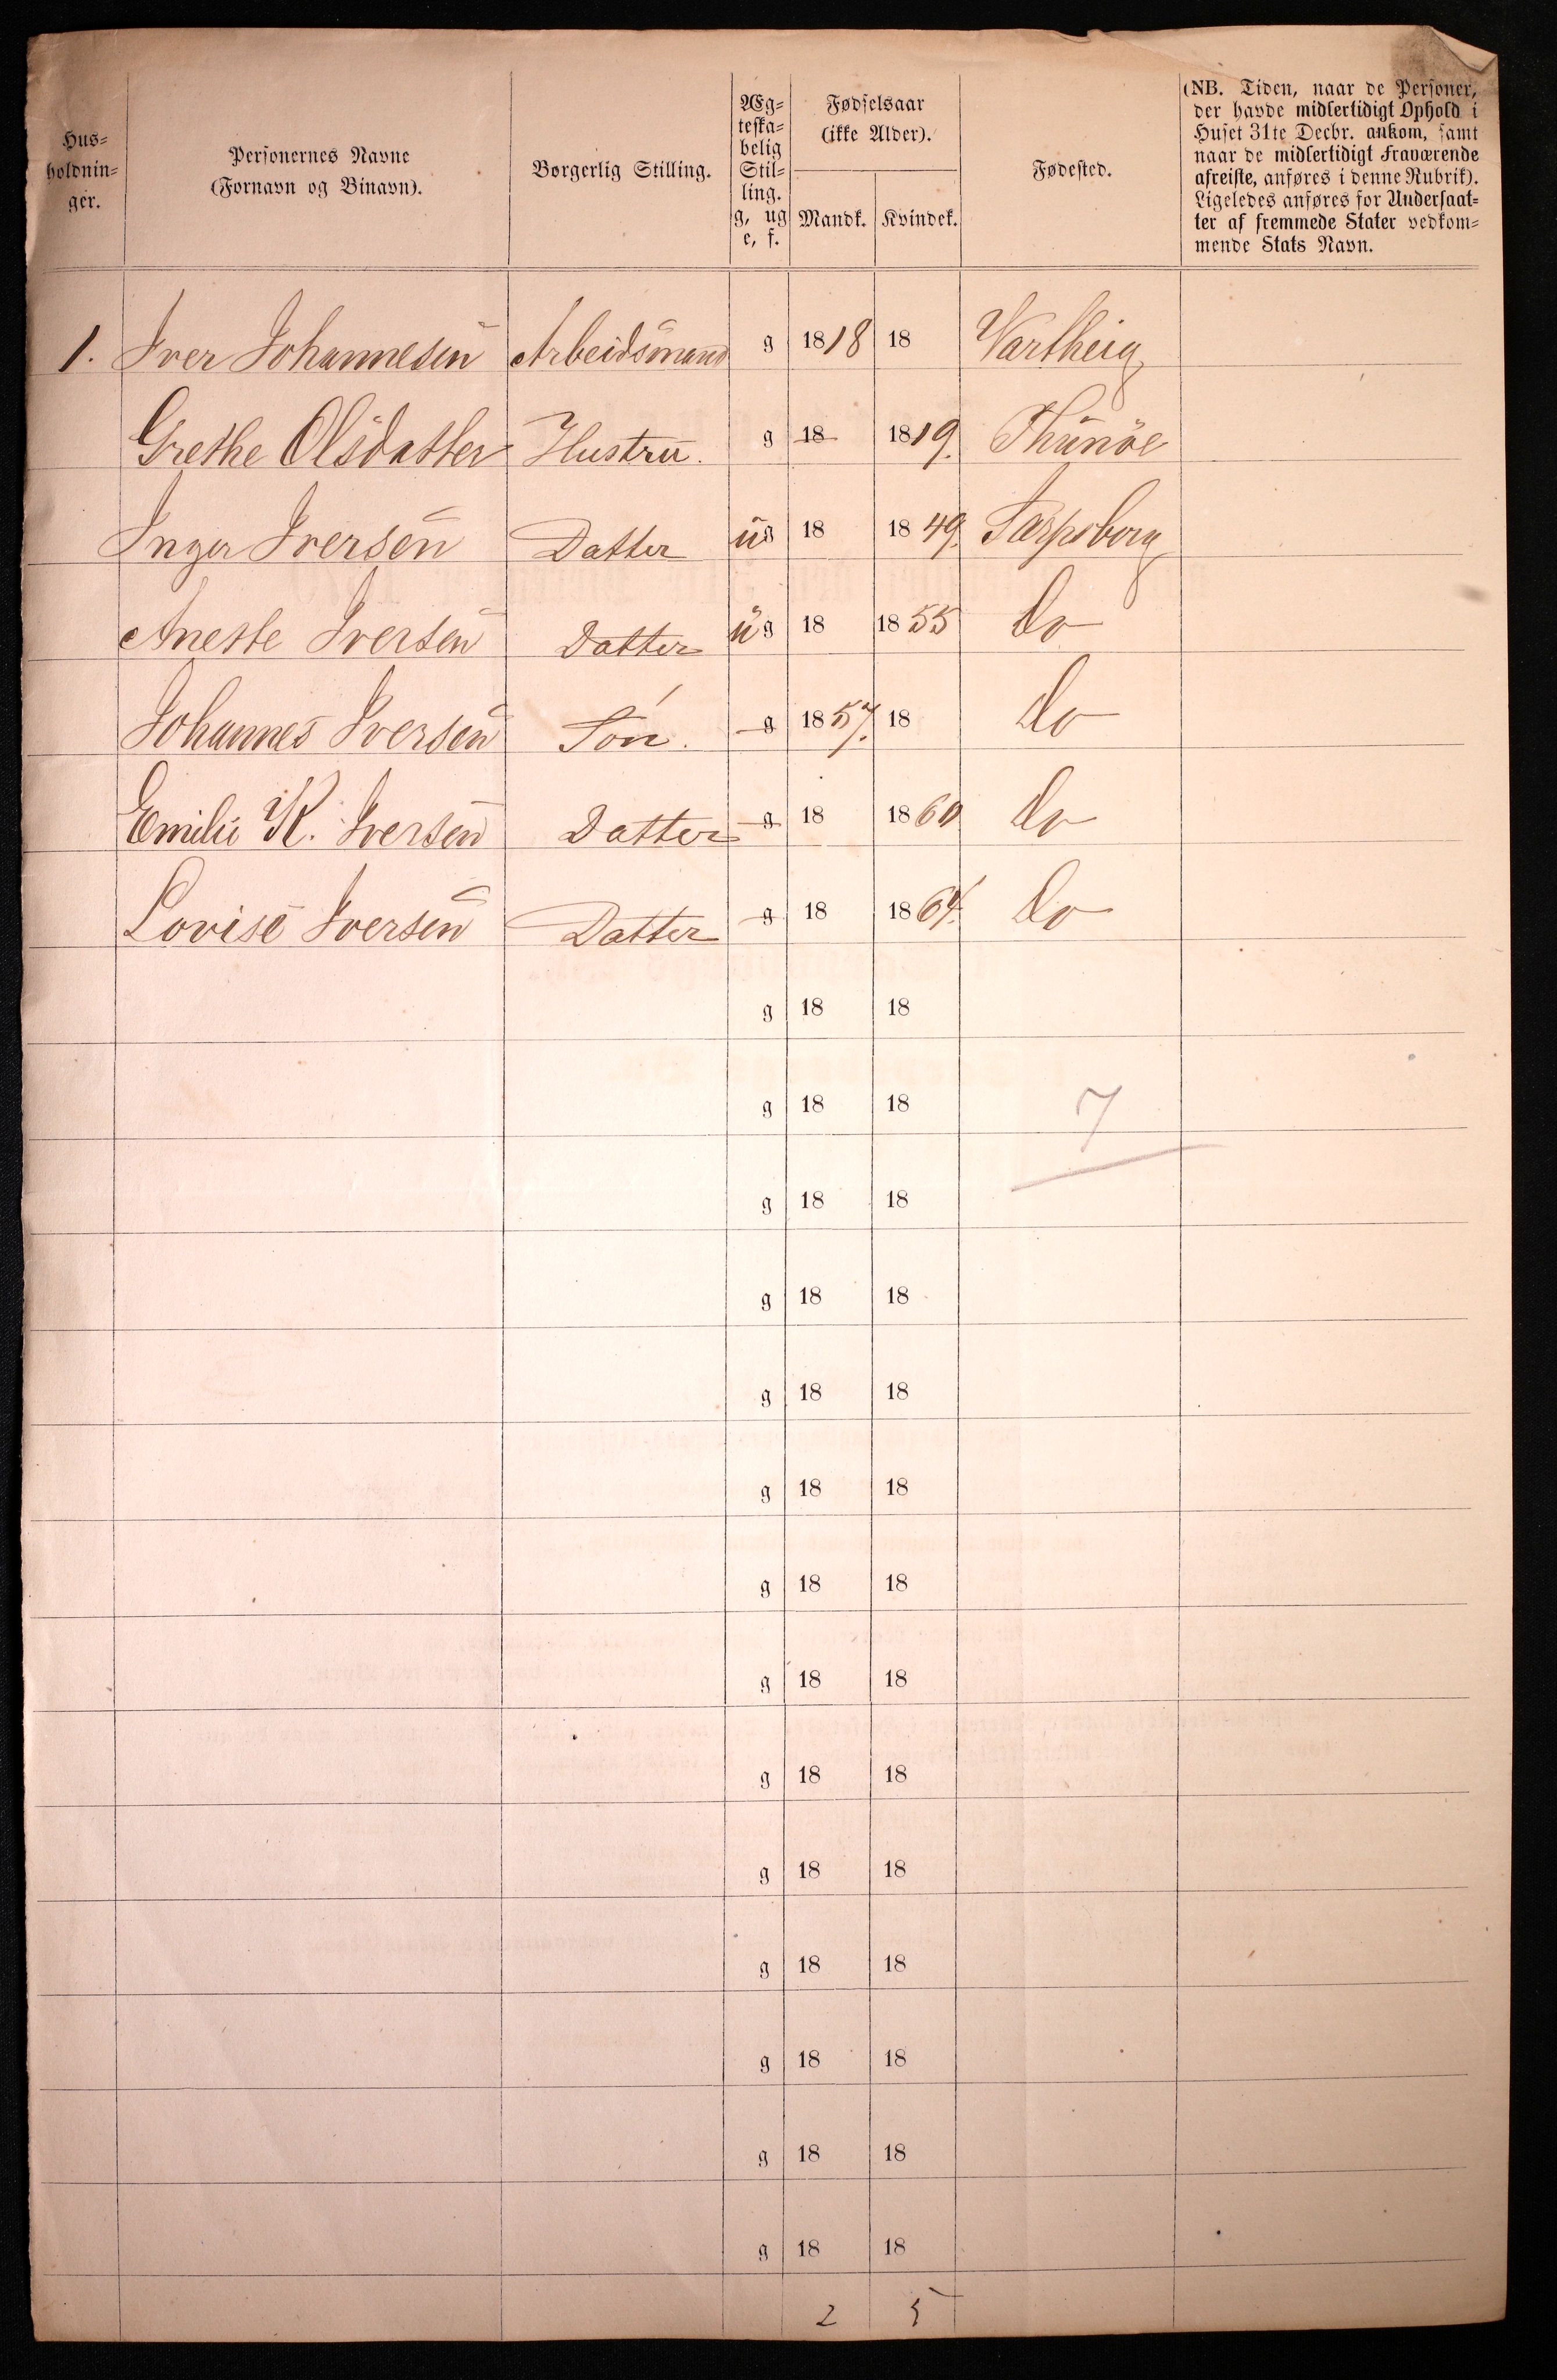 Hus-
holdnin-
ger.
Personernes Navne
(Fornavn og Binavn).
Borgerlig Stilling.
Æg-
teska-
belig
Stil-
ling.
g, ug
e, f.
Fødselsaar
(ikke Alder).
Mandk. Kvindek.
Fødested.
(NB. Tiden, naar de Personer,
der havde midlertidigt Ophold i
Huset 31te Decbr. ankom, samt
naar de midlertidigt Fraværende
afreiste, anføres i denne Rubrik).
Ligeledes anføres for Undersaat-
ter af fremmede Stater vedkom-
mende Stats Navn.
1. Iver Johannesen Arbeidsmand g 1818 18 Vartheig
Grethe Olsdatter Hustru. g 18 1819. Thunöe
Inger Iversen Datter ug 18 1849. Sarpsborg
Anette Iversen Datter ug 18 1855 do
Johannes Iversen Sön. g 1857. 18 do
Emilie K. Iversen Datter g 18 1860 do
Lovise Iversen Datter g 18 1864. do
g 18 18
g 18 18 7
g 18 18
g 18 18
g 18 18
g 18 18
g 18 18
g 18 18
g 18 18
g 18 18
g 18 18
g 18 18
g 18 18
g 18 18
2 5